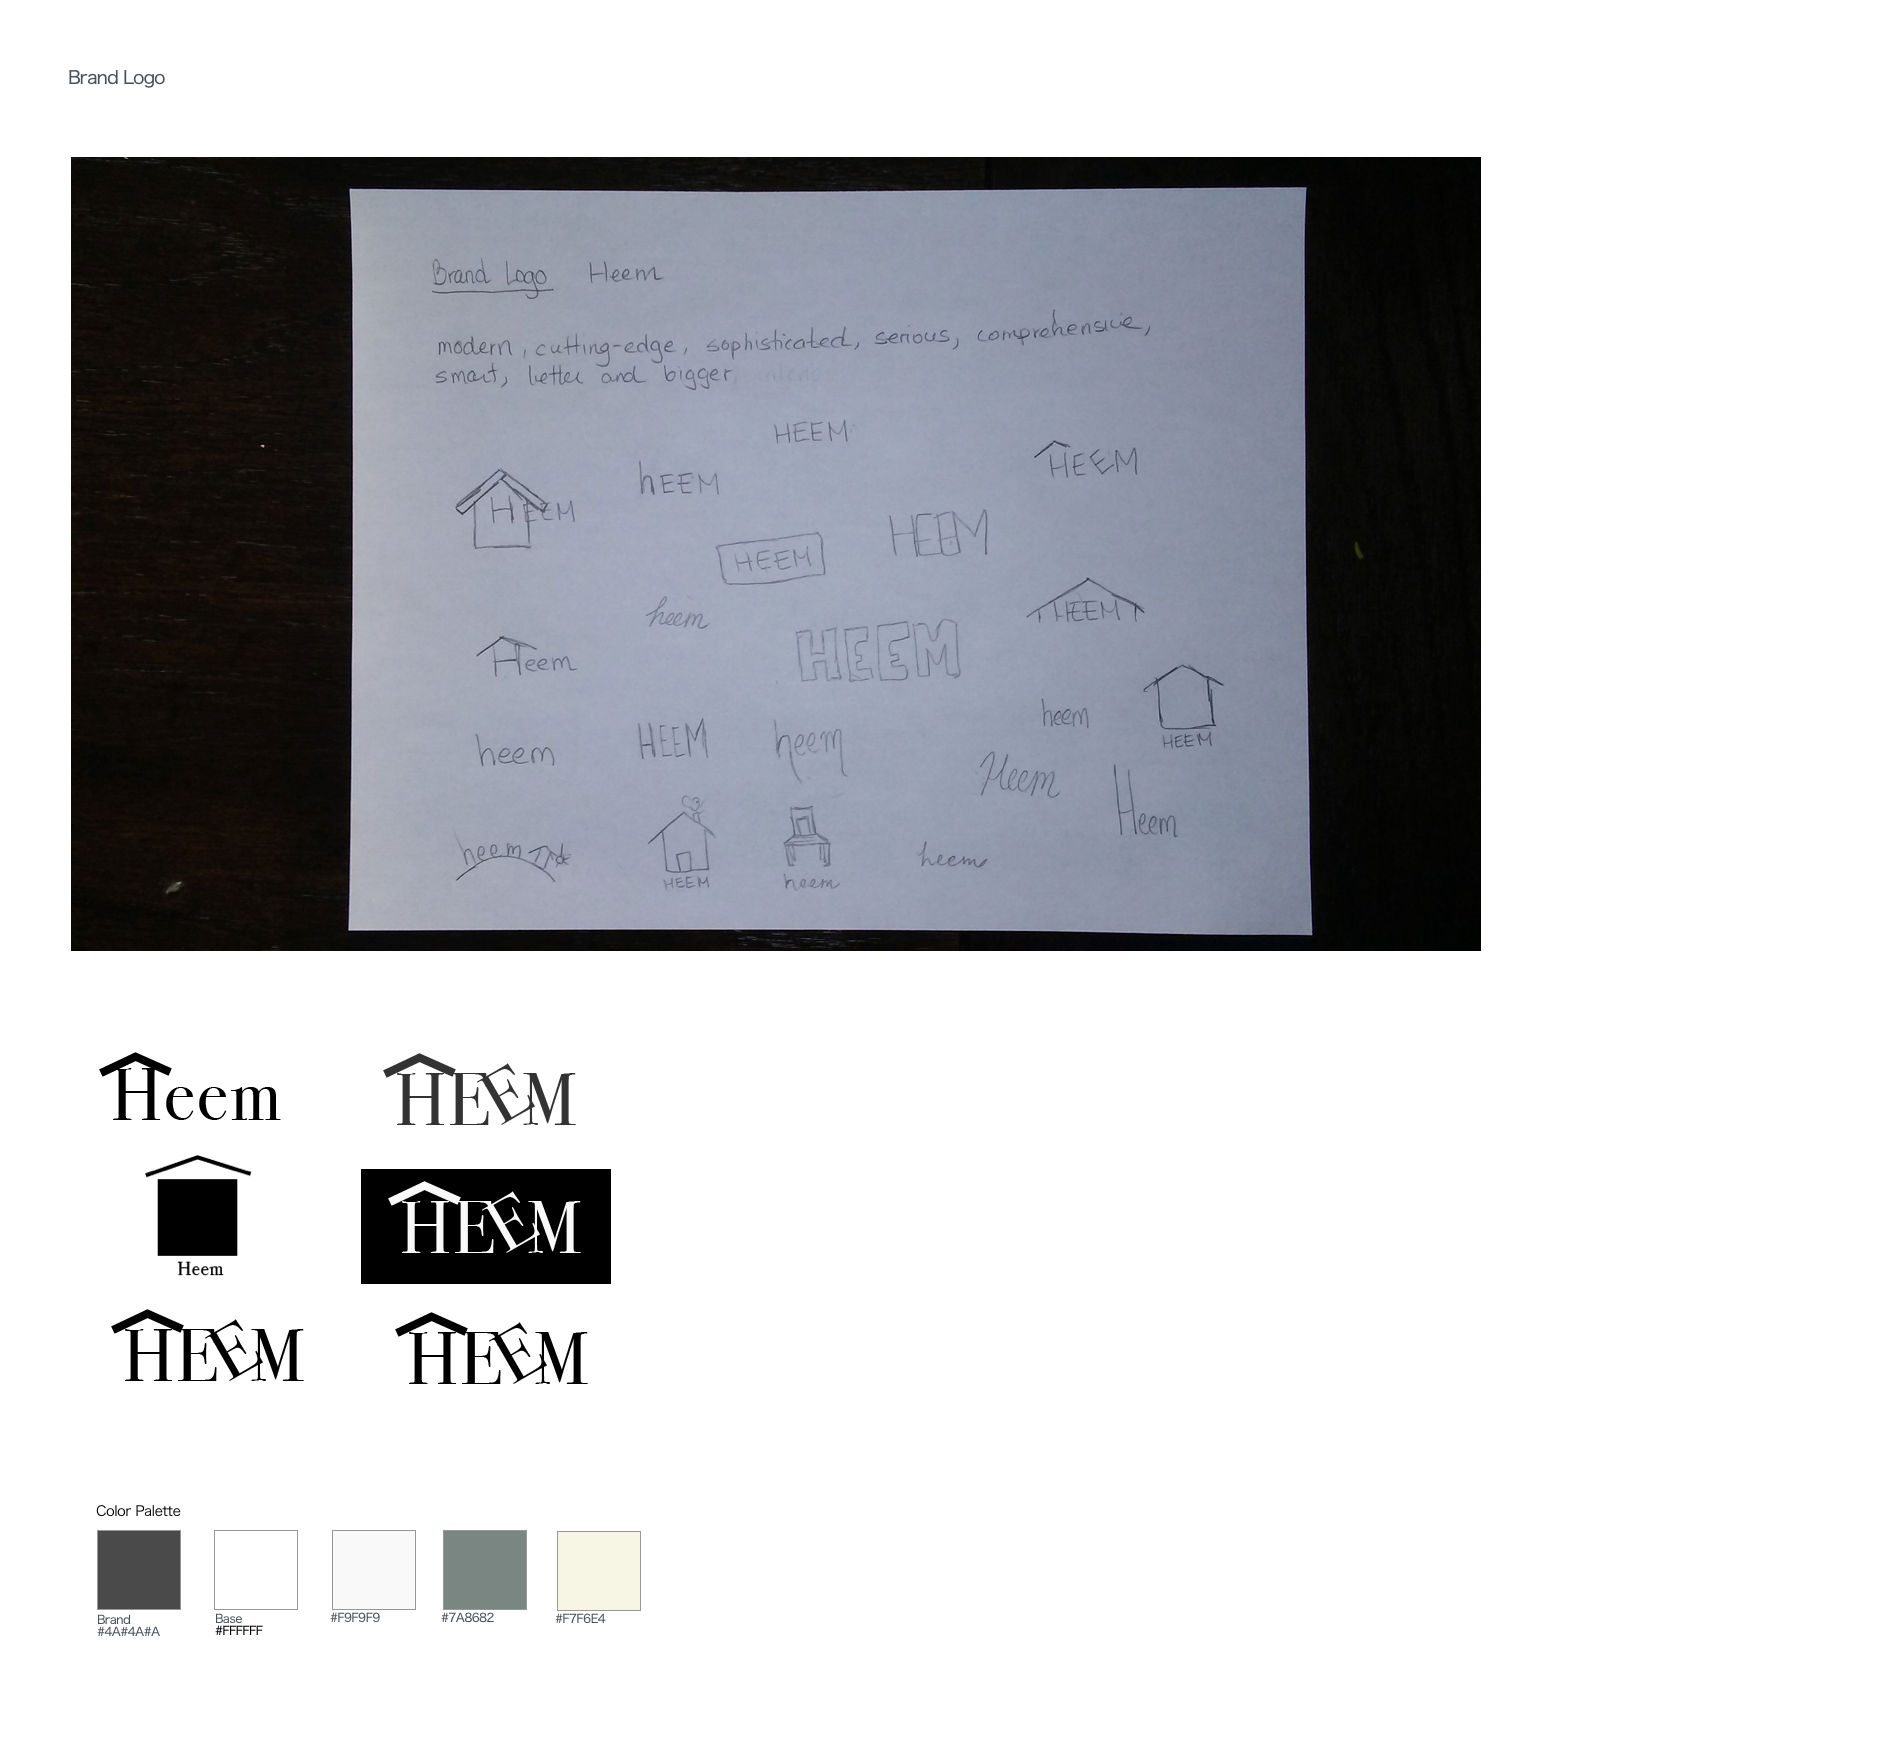 Brand Logo
Brand Logo Heem
modern, cutting-edge, sophisticated, serious, comprehensive,
smart, better and bigger
HEEM
HEEM
hEEM
HEEM
HEEM
HEEM
HEEM
heem
HEEM
HEEM
Heem
heem
HEEM
heem
HEEM
heem
Heem
Heem
heem
HEEM
heem
heem
Heem
HEEM
Heem
HEEM
HEEM
HEEM
Color Palette
Brand
#4A#4A#A
Base
#FFFFFF
#F9F9F9
#7A8682
#F7F6E4